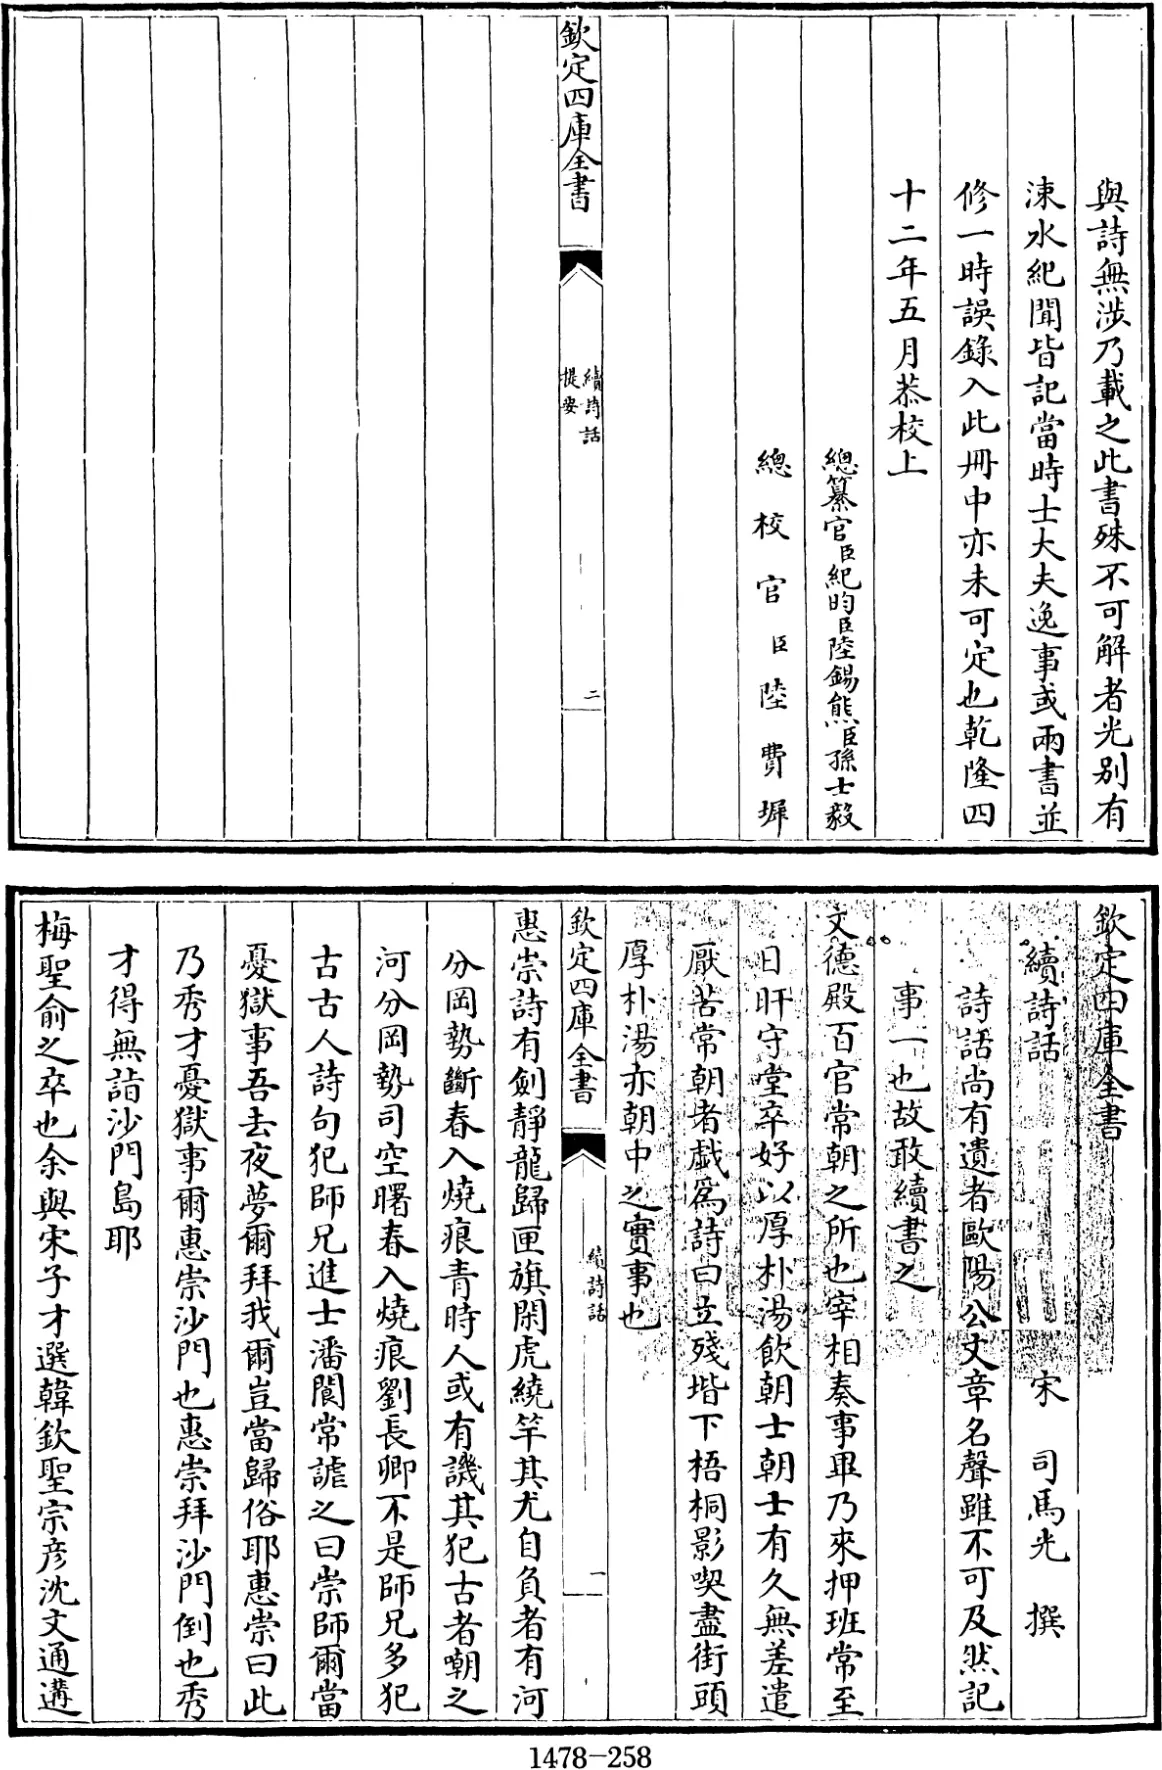 與詩無涉乃載之此書殊不可解者光别有
涑水紀聞皆記當時士大夫逸事或兩書並
修一時誤錄入此冊中亦未可定也乾隆四
十二年五月恭校上
總纂官臣紀昀臣陸錫熊臣孫士毅
總校官臣陸費墀
欽定四庫全書
續詩話
提要
二
欽定四庫全書
續詩話
宋 司馬光 撰
詩話尚有遺者歐陽公文章名聲雖不可及然記
事一也故敢續書之
文德殿百官常朝之所也宰相奏事畢乃來押班常至
日旰守堂卒好以厚朴湯飲朝士朝士有久無差遣
厭苦常朝者戲爲詩曰立殘堦下梧桐影喫盡街頭
厚朴湯亦朝中之實事也
欽定四庫全書
續詩話
一
惠崇詩有劍靜龍歸匣旗閑虎繞竿其尤自負者有河
分岡勢斷春入燒痕青時人或有譏其犯古者嘲之
河分岡勢司空曙春入燒痕劉長卿不是師兄多犯
古古人詩句犯師兄進士潘閬常謔之曰崇師爾當
憂獄事吾去夜夢爾拜我爾豈當歸俗耶惠崇曰此
乃秀才憂獄事爾惠崇沙門也惠崇拜沙門倒也秀
才得無詣沙門島耶
梅聖俞之卒也余與宋子才選韓欽聖宗彦沈文通遘
1478-258